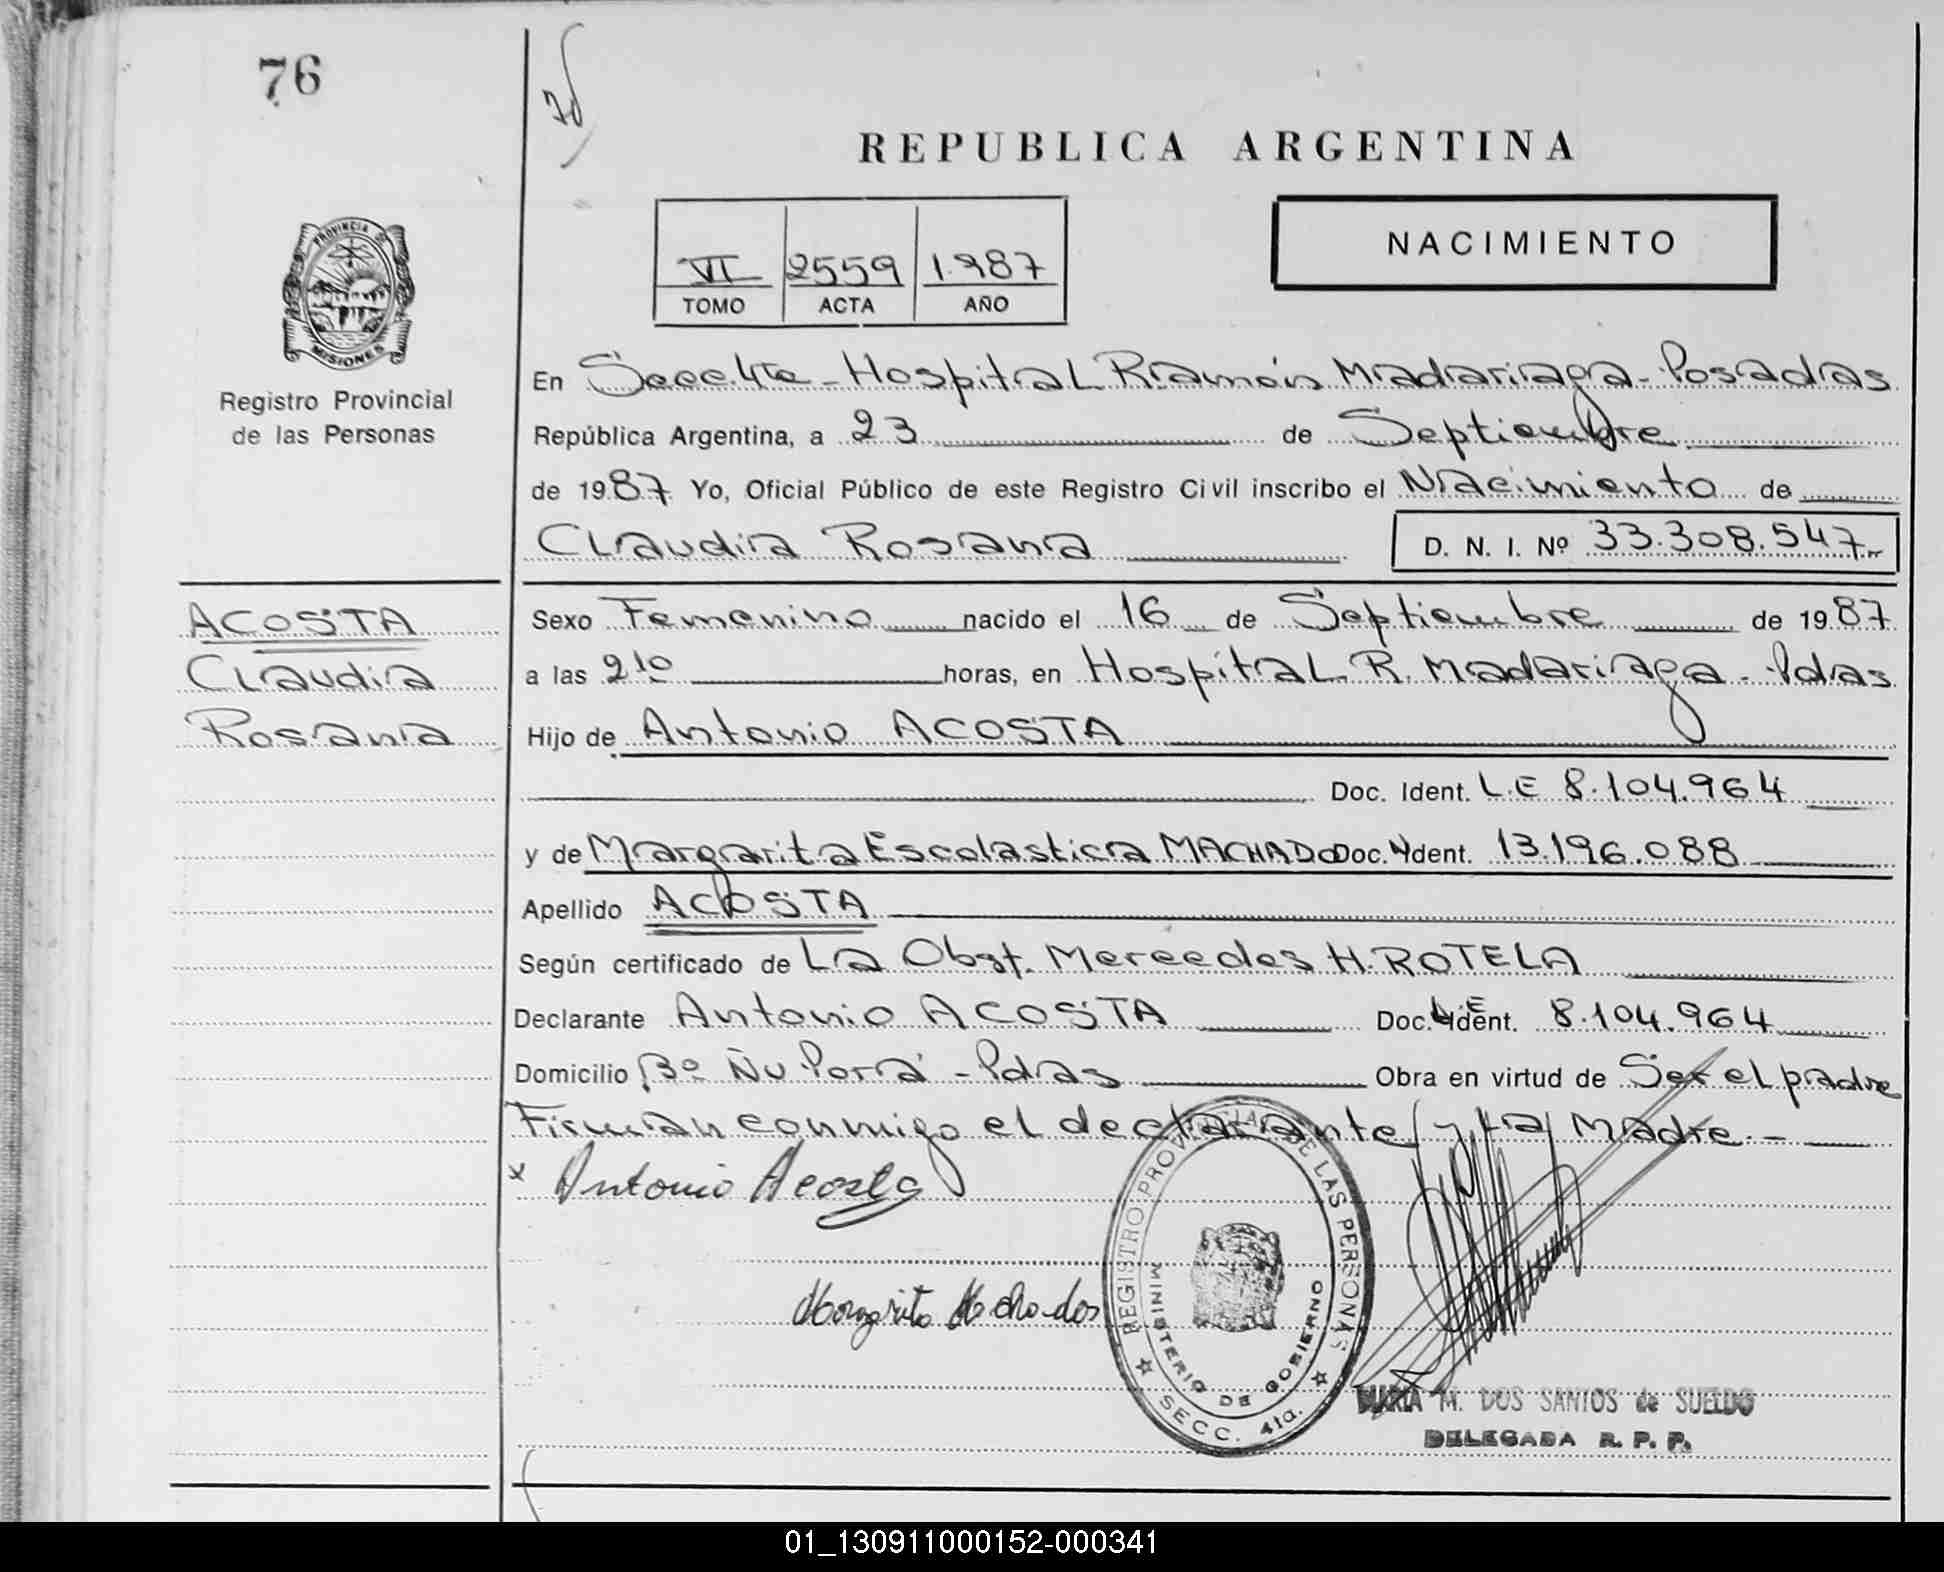 76
REPUBLICA ARGENTINA
NACIMIENTO
VI 2559 1.987
TOMO ACTA AÑO
PROVINCIA DE
MISIONES
Registro Provincial
de las Personas
En Secc. 4ta - Hospital Ramón Madariaga - Posadas
República Argentina, a 23 de Septiembre
de 1987 Yo, Oficial Público de este Registro Civil inscribo el Nacimiento de
Claudia Rosana D. N. I. Nº 33.308.547
ACOSTA
Claudia
Rosana
Sexo Femenino nacido el 16 de Septiembre de 1987
a las 2 10 horas, en Hospital R. Madariaga - Pdas
Hijo de Antonio ACOSTA
Doc. Ident. L.E 8.104.964
y de Margarita Escolastica MACHADO Doc. Ident. 13.196.088
Apellido ACOSTA
Según certificado de La Obst. Mercedes H. ROTELA
Declarante Antonio ACOSTA Doc. Ident. L.E 8.104.964
Domicilio Bº Ñu Porá - Pdas Obra en virtud de Ser el padre
Firman conmigo el declarante y la Madre. -
x Antonio Acosta
Margarita Machado
REGISTRO PROVINCIAL DE LAS PERSONAS
MINISTERIO DE GOBIERNO
SECC. 4ta.
MARIA M. DOS SANTOS de SUELDO
DELEGADA R. P. P.
01_130911000152-000341